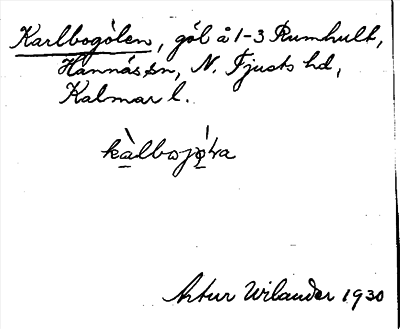 Karlbogölen, göl å 1-3 Rumhult,
Hannäs sn, N. Tjusts hd,
Kalmar l.
kàlbojó̩ᵗra
Artur Wilander 1930